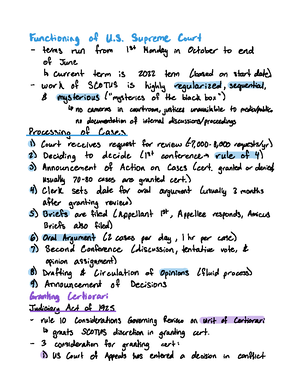 Functioning of U.S. Supreme Court
- terms run from 1st Monday in October to end
of June
↳ current term is 2022 term (based on start date)
- work of SCOTUS is highly regularized, sequential,
& mysterious ("mysteries of the black box")
↳ no cameras in courtroom, justices unavailable to media/public,
no documentation of internal discussions/proceedings
Processing of Cases
1) Court receives request for review (~7,000-8,000 requests/yr)
2) Deciding to decide (1st conference → rule of 4)
3) Announcement of Action on Cases (cert. granted or denied)
usually 70-80 cases are granted cert.)
4) Clerk sets date for oral argument (usually 3 months
after granting review)
5) Briefs are filed (Appellant 1st, Appellee responds, Amicus
Briefs also filed)
6) Oral Argument (2 cases per day, 1 hr per case)
7) Second Conference (discussion, tentative vote, &
opinion assignment)
8) Drafting & Circulation of Opinions (fluid process)
9) Announcement of Decisions
Granting Certiorari
Judiciary Act of 1925
- rule 10 Considerations Governing Review on Writ of Certiorari
↳ grants SCOTUS discretion in granting cert.
- 3 consideration for granting cert:
1) US Court of Appeals has entered a decision in conflict